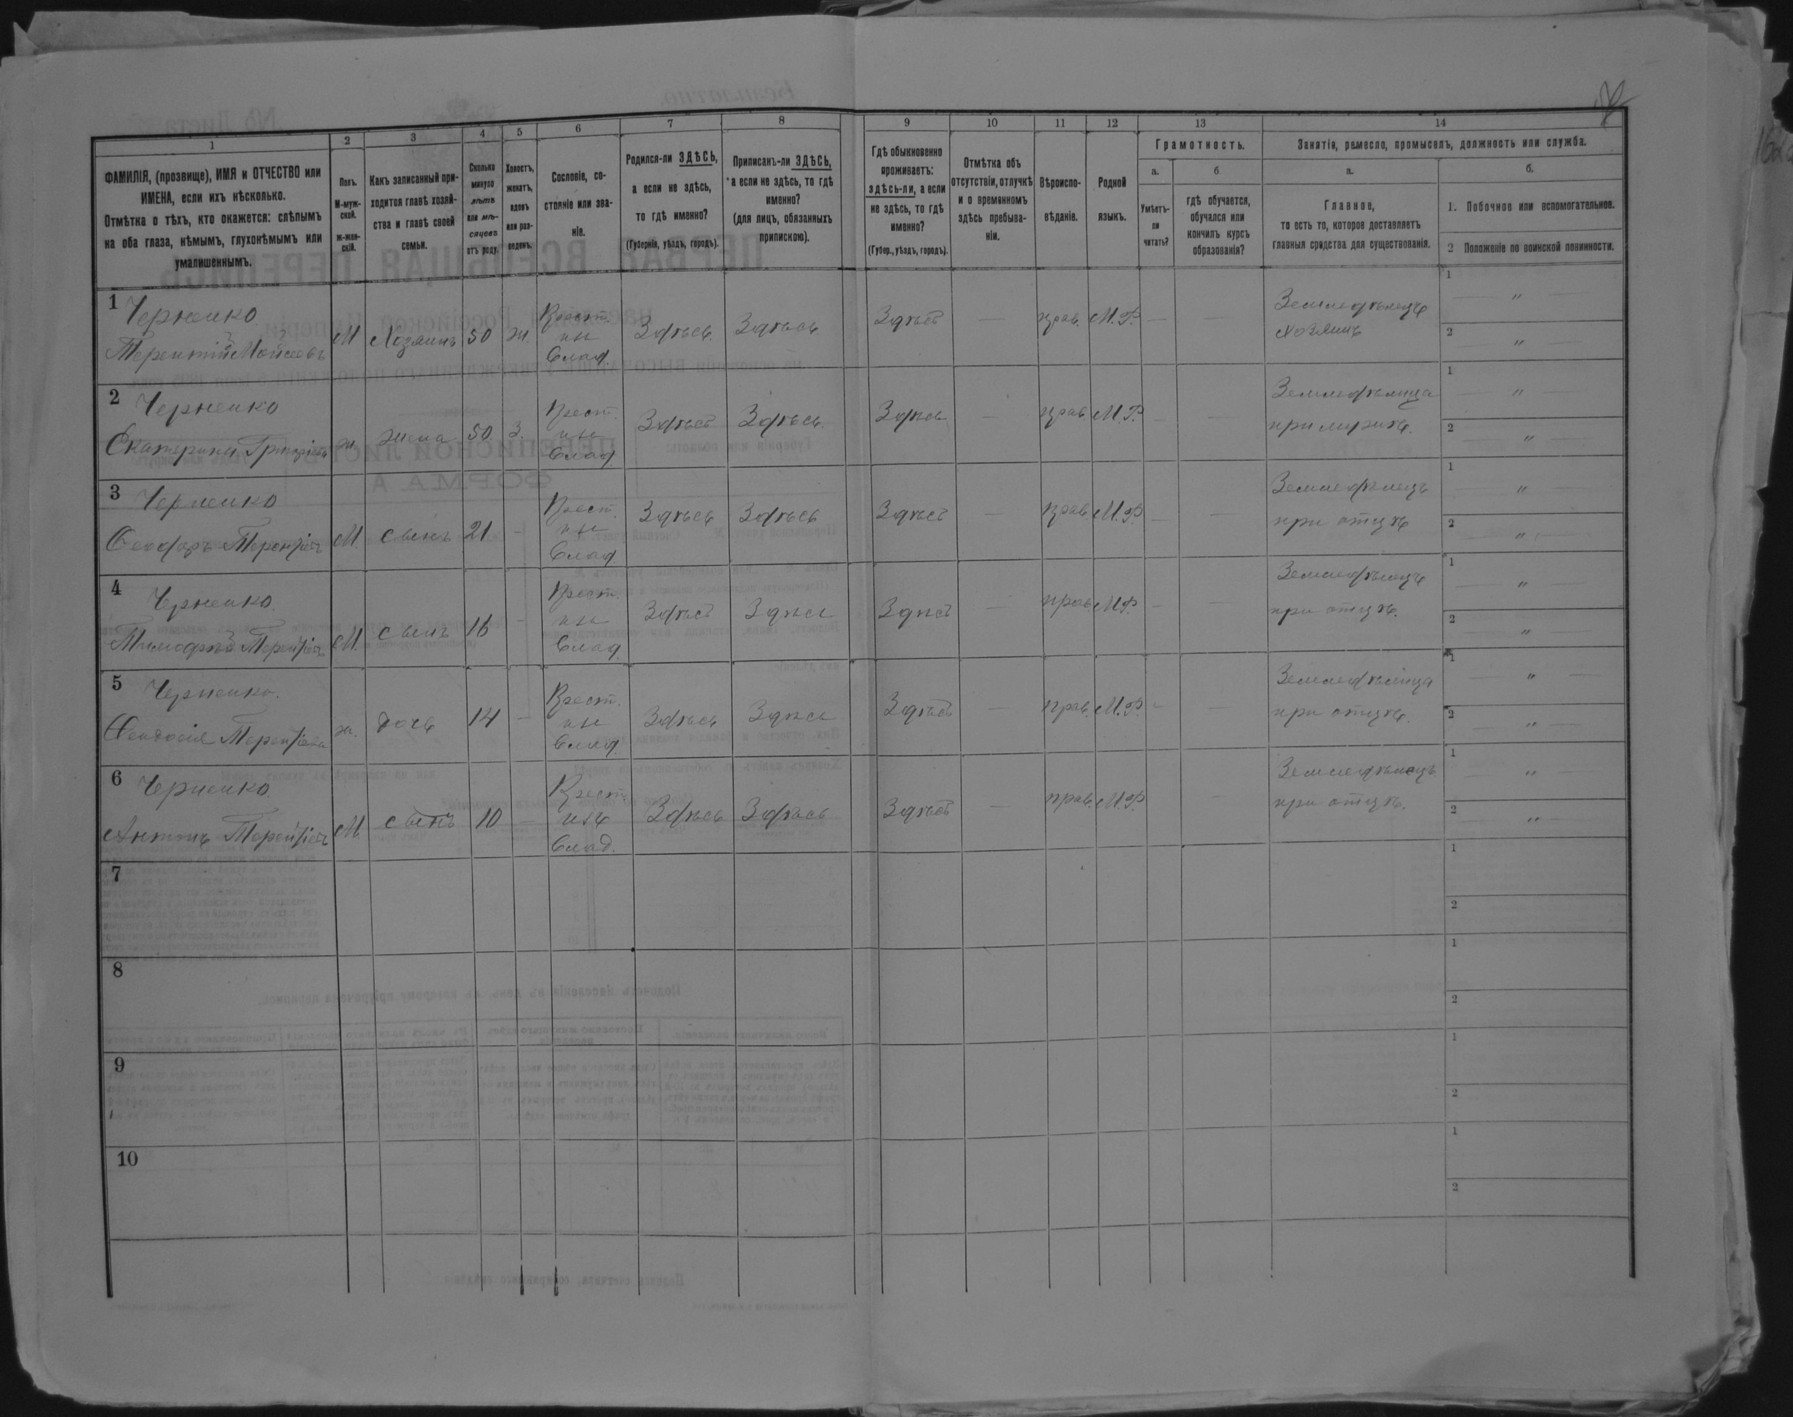 1 2 3 4 5 6 7 8 9 10 11 12 13 14
ФАМИЛІЯ, (прозвище), ИМЯ и ОТЧЕСТВО или
ИМЕНА, если ихъ нѣсколько.
Отмѣтка о тѣхъ, кто окажется: слѣпымъ
на оба глаза, нѣмымъ, глухонѣмымъ или
умалишеннымъ.
Полъ.
М-муж-
ской.
Ж-жен-
скій.
Какъ записанный при-
ходится главѣ хозяй-
ства и главѣ своей
семьи.
Сколько
минуло
лѣтъ
или мѣ-
сяцевъ
отъ роду.
Холостъ,
женатъ,
вдовъ
или раз-
веденъ.
Сословіе, со-
стояніе или зва-
ніе.
Родился-ли ЗДѢСЬ,
а если не здѣсь,
то гдѣ именно?
(Губернія, уѣздъ, городъ).
Приписанъ-ли ЗДѢСЬ,
а если не здѣсь, то гдѣ
именно?
(для лицъ, обязанныхъ
припискою).
Гдѣ обыкновенно
проживаетъ:
здѣсь-ли, а если
не здѣсь, то гдѣ
именно?
(Губер., уѣздъ, городъ).
Отмѣтка объ
отсутствіи, отлучкѣ
и о временномъ
здѣсь пребыва-
ніи.
Вѣроиспо-
вѣданіе.
Родной
языкъ.
Грамотность.
а. б.
Умѣетъ-
ли
читать?
гдѣ обучается,
обучался или
кончилъ курсъ
образованія?
Занятіе, ремесло, промыселъ, должность или служба.
а. б.
Главное,
то есть то, которое доставляетъ
главныя средства для существованія.
1. Побочное или вспомогательное.
2 Положеніе по воинской повинности.
1 Черненко
Терентій Мойсеевъ М Хозяинъ 50 ж. Крест. Здѣсь. Здѣсь Здѣсь — прав. М.Р. — — Земледѣлецъ
хозяинъ
1 — " —
2 — " —
2 Черненко
Екатерина Григоріева ж. жена 50 З. Крест. Здѣсь Здѣсь Здѣсь — прав. М.Р. — — Земледѣлица
при мужѣ.
1 — " —
2 — " —
3 Черненко
Ѳеодоръ М. сынъ 21 — Крест. Здѣсь Здѣсь Здѣсь — прав. М.Р. — — Земледѣлецъ
при отцѣ
1 — " —
2 — " —
4 Черненко
Тимофей М. сынъ 16 — Крест. Здѣсь Здѣсь Здѣсь — прав. М.Р. — — Земледѣлецъ
при отцѣ.
1 — " —
2 — " —
5 Черненко.
Ѳеодосія ж. дочь 14 — Крест. Здѣсь Здѣсь Здѣсь — прав. М.Р. — — Земледѣлица
при отцѣ.
1 — " —
2 — " —
6 Черненко
Антонъ М. сынъ 10 — Крест. Здѣсь Здѣсь Здѣсь — прав. М.Р. — — Земледѣлецъ
при отцѣ.
1 — " —
2 — " —
7
1
2
8
1
2
9
1
2
10
1
2